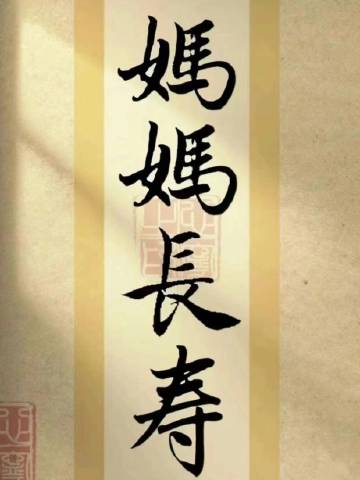 媽媽長寿